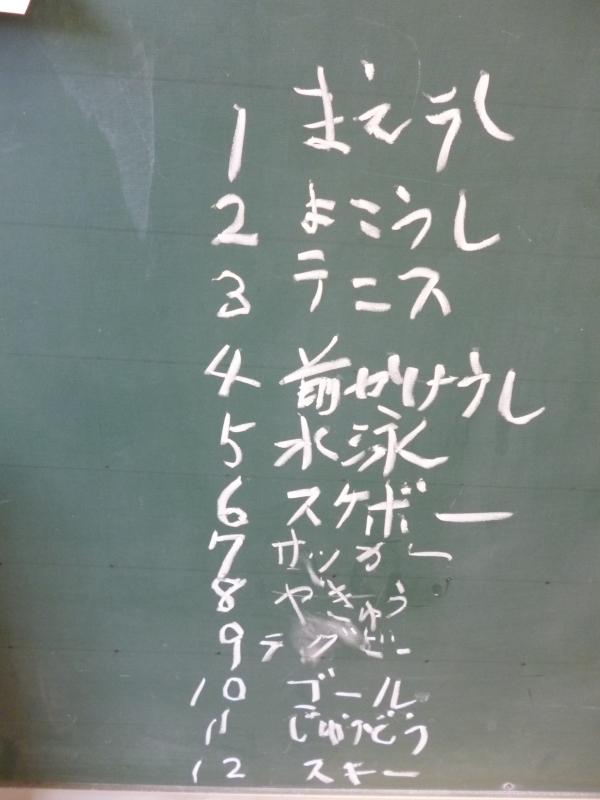 1 まえうし
2 よこうし
3 テニス
4 前かけうし
5 水泳
6 スケボー
7 サッカー
8 やきゅう
9 ラグビー
10 ゴール
11 じゅうどう
12 スキー